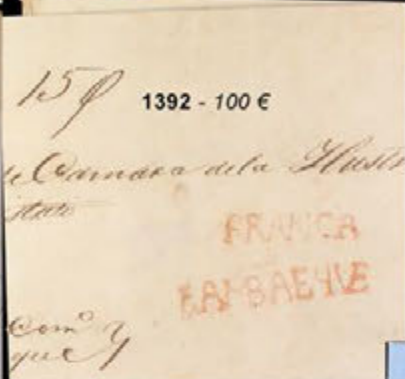 15
1392 - 100 €
de Camara de la Illustr
FRANCA
LAMBAEYUE
Com^n y
que